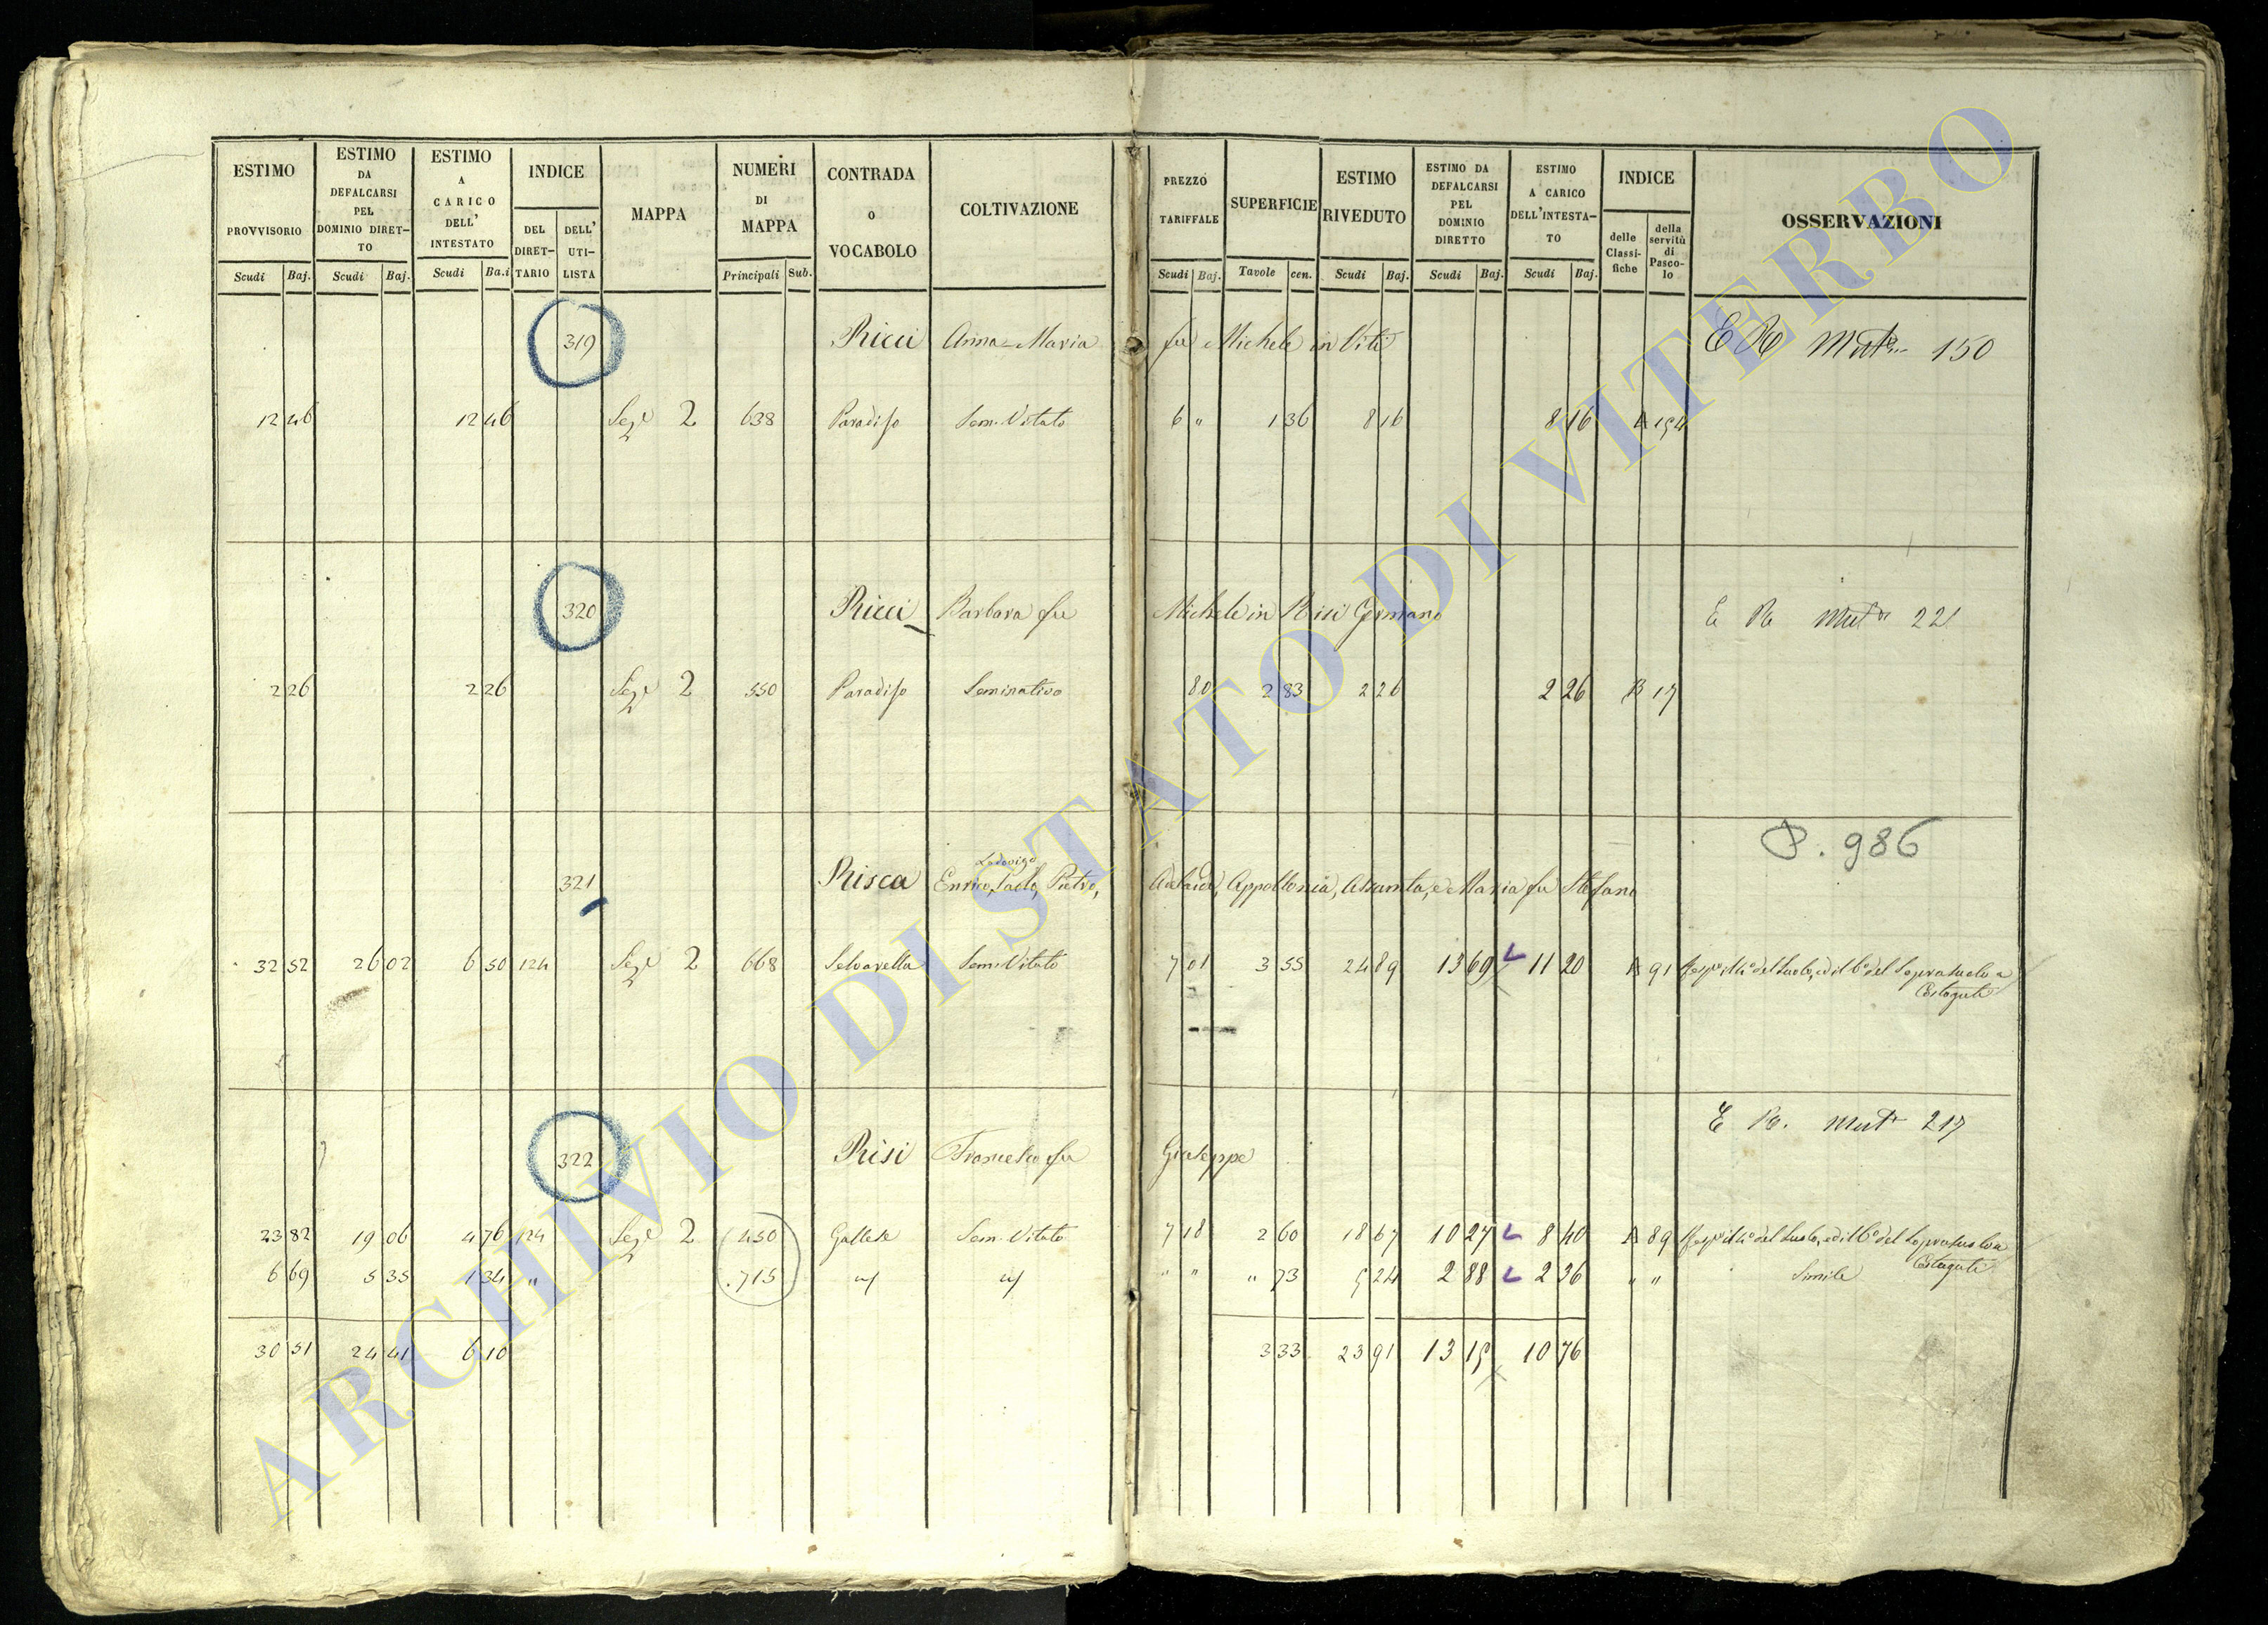 ESTIMO PROVVISORIO Scudi Baj. | ESTIMO DA DEFALCARSI PEL DOMINIO DIRET-TO Scudi Baj. | ESTIMO A CARICO DELL' INTESTATO Scudi Ba.i | INDICE DEL DIRET-TARIO DELL' UTI-LISTA | MAPPA | NUMERI DI MAPPA Principali Sub. | CONTRADA O VOCABOLO | COLTIVAZIONE | PREZZO TARIFFALE Scudi Baj. | SUPERFICIE Tavole cen. | ESTIMO RIVEDUTO Scudi Baj. | ESTIMO DA DEFALCARSI PEL DOMINIO DIRETTO Scudi Baj. | ESTIMO A CARICO DELL'INTESTA-TO Scudi Baj. | INDICE delle Classi-fiche della servitù di Pasco-lo | OSSERVAZIONI
319 Ricci Anna-Maria fu Michele in Viti 150
12 46 12 46 Sez.e 2 638 Paradiso Sem. Vitato 6 " 1 36 8 16 8 16 A 154
320 Ricci Barbara fu Michele in Risi Germano 221
2 26 2 26 Sez.e 2 550 Paradiso Seminativo 80 2 83 2 26 2 26 B 17
P. 986
Lodovigo
321 Risca Enrico, Paolo, Pietro, Adelaide, Appollonia, Assunta, e Maria fu Stefano
32 52 26 02 6 50 124 Sez.e 2 668 Selvarella Sem. Vitato 7 01 3 55 24 89 13 69 11 20 A 91 del Suolo, ed il 6.o del Soprasuolo a
Costaguti
E R. Mut.e 217
322 Risi Francesco fu Giuseppe
23 82 19 06 4 76 124 Sez.e 2 450 Gallese Sem. Vitato 7 18 2 60 18 67 10 27 8 40 A 89 del Suolo, ed il 6.o del Soprasuolo a
Costaguti
6 69 5 35 1 34 " 715 " " " 73 5 24 2 88 2 36 " " Simile
30 51 24 41 6 10 3 33 23 91 13 15 10 76
ARCHIVIO DI STATO DI VITERBO